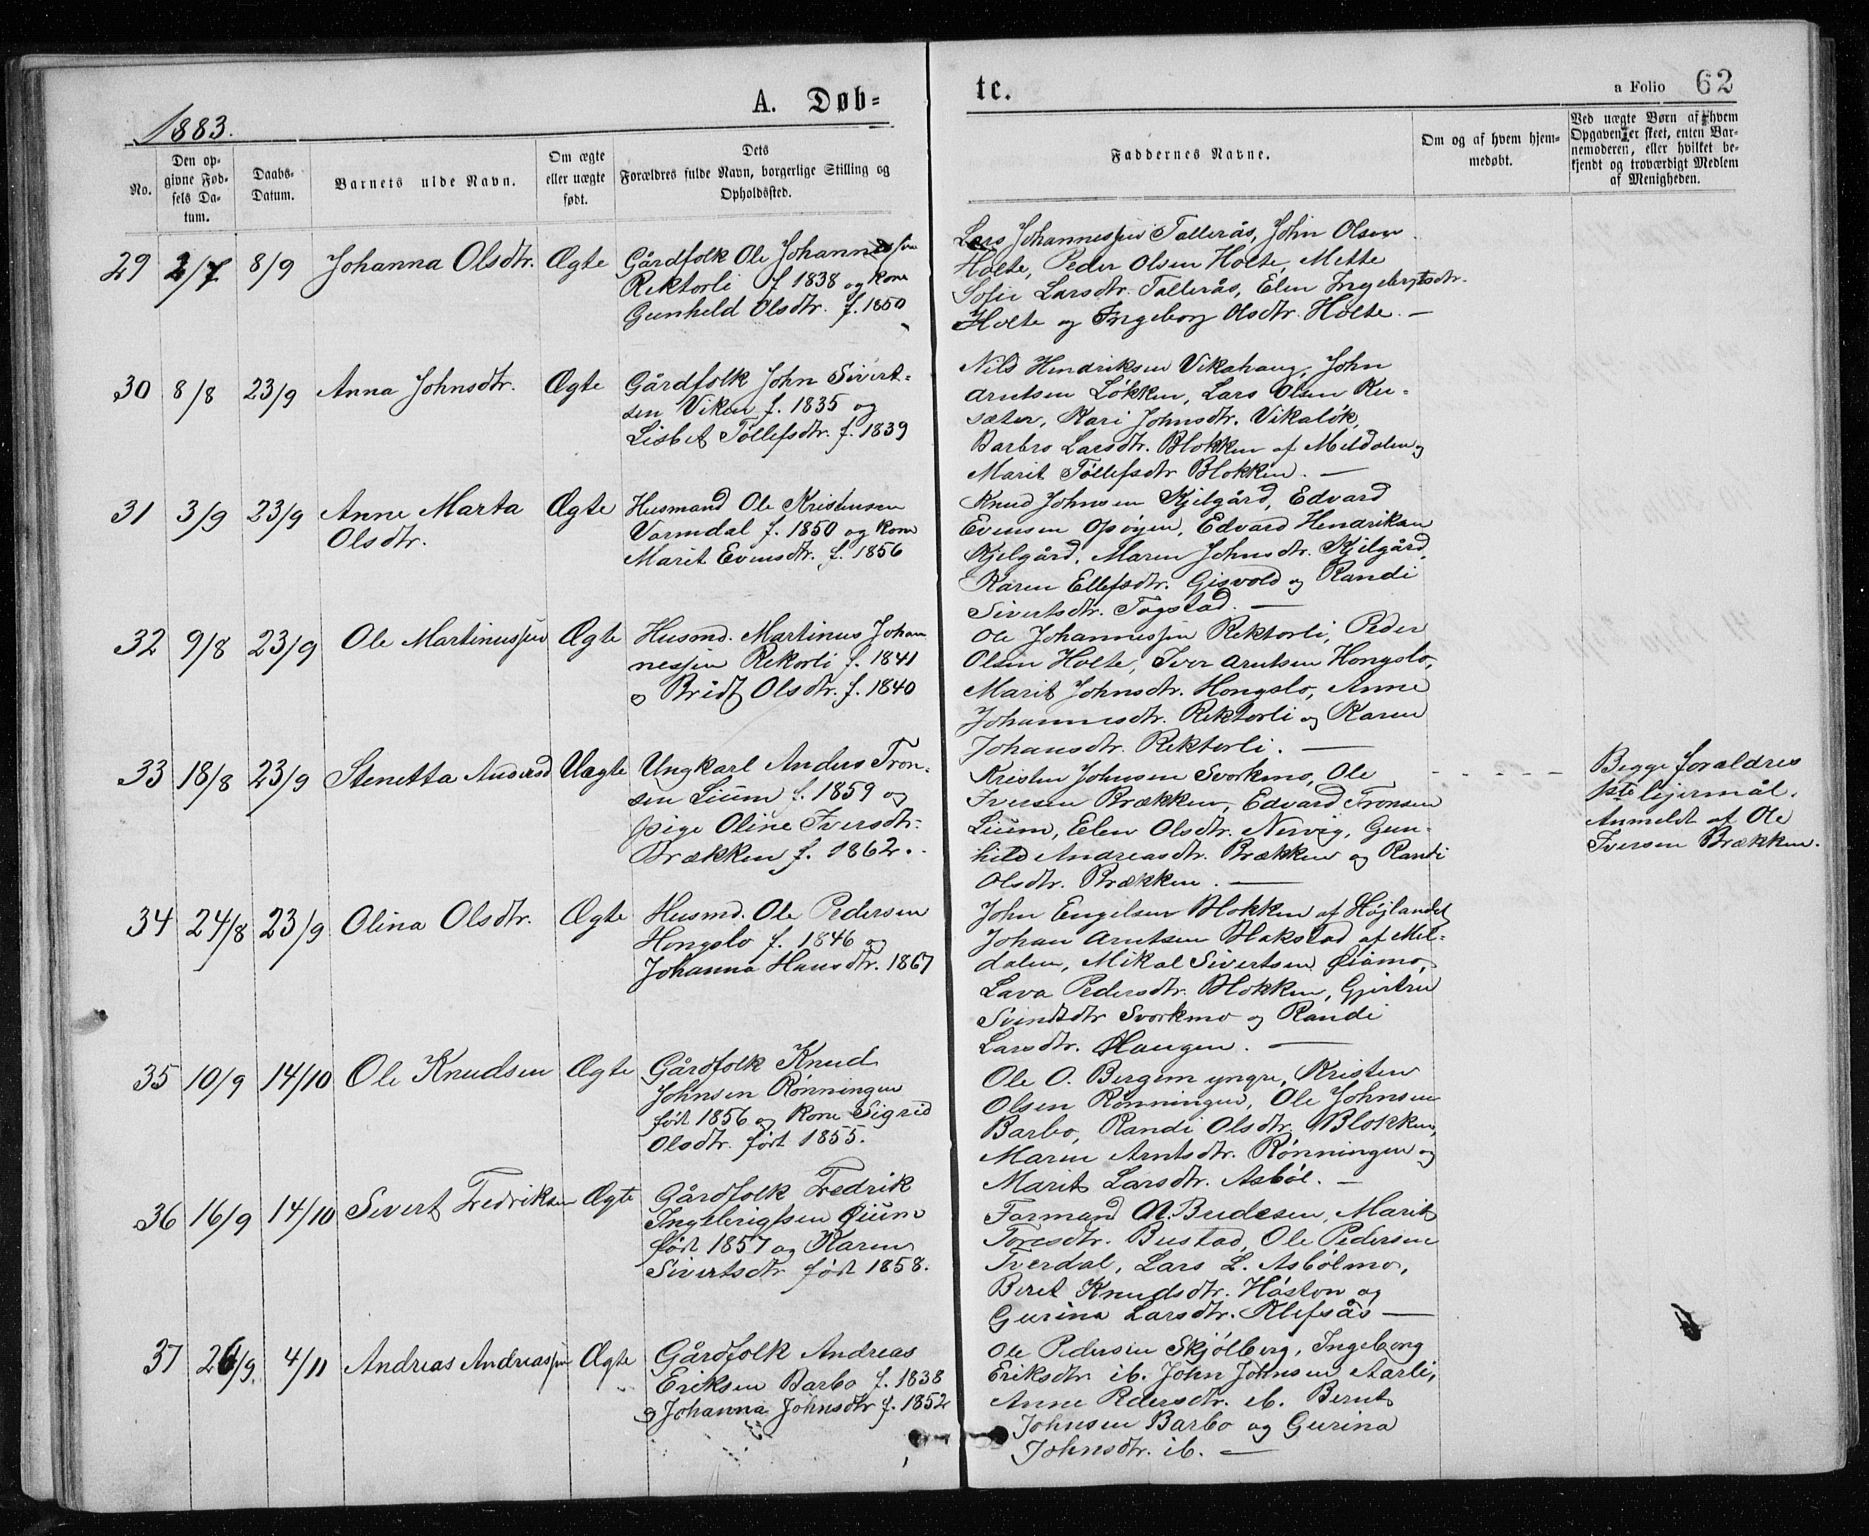 1883.
A. Døb=
te.
a Folio 62
No.
Den op-
givne Fød-
sels Da-
tum.
Daabs-
Datum.
Barnets ulde Navn.
Om ægte
eller uægte
født.
Dets
Forældres fulde Navn, borgerlige Stilling og
Opholdssted.
Faddernes Navne.
Om og af hvem hjem-
medøbt.
Ved uægte Børn af hvem
Opgaven er steet, enten Bar-
nemoderen, eller hvilket be-
kjendt og troværdigt Medlem
af Menigheden.
29 2/7 8/9 Johanna Olsdtr. Ægte
Gårdfolk Ole Johannessen
Rektorli f. 1838 og kone
Gunheld Olsdtr. f. 1850
Lars Johannessen Tallerås, John Olsen
Holte, Peder Olsen Holte, Mette
Sofie Larsdtr. Tallerås, Elen Ingebrigtsdtr.
Holte og Ingeborg Olsdtr. Holte. —
30 8/8 23/9 Anna Johnsdtr. Ægte
Gårdfolk John Sivert-
sen Viken f. 1835 og
Lisbet Tøllefsdtr. f. 1839
Nils Hendriksen Vikahaug, John
Arntsen Løkken, Lars Olsen Ru-
sæter, Kari Johnsdtr. Vikaløk,
Barbro Larsdtr. Blokken af Meldalen og
Marit Tøllefsdtr Blokken. —
31 3/9 23/9 Anne Marta
Olsdtr.
Ægte
Husmand Ole Kristensen
Vormdal f. 1850 og kone
Marit Evensdtr. f. 1856
Knud Johnsen Kjelgård, Edvard
Evensen Opøyen, Edvard Hendriksen
Kjelgård, Maren Johnsdtr. Kjelgård,
Karen Ellefsdtr. Gisvold og Randi
Sivertsdtr. Togstad. —
32 9/8 23/9 Ole Martinussen Ægte
Husmd. Martinus Johan
nessen Rekorli f. 1841
og Bridt Olsdtr. f. 1840
Ole Johannessen Rektorli, Peder
Olsen Holte, Iver Arntsen Hongslo,
Marit Johnsdtr. Hongslo, Anne
Johannesdtr. Rektorli og Karen
Johansdtr. Rektorli. —
33 18/8 23/9 Stenetta Andersd Uægte
Ungkarl Anders Tron-
sen Lium f. 1859 og
pige Oline Iversdtr.
Brækken f. 1862.
Kristen Johnsen Svorkmo, Ole
Iversen Brækken, Edvard Tronsen
Lium, Elen Olsdtr. Nervig, Gun-
hild Andreasdtr. Brækken og Randi
Olsdtr. Brækken. —
Begge foraldres
1ste lejermål.
Anmeldt af Ole
Iversen Brækken.
34 24/8 23/9 Olina Olsdtr. Ægte
Husmd. Ole Pedersen
Hongslo f. 1846 og
Johanna Hansdtr. 1867
John Engelsen Blokken af Højlandet
Johan Arntsen Blakstad af Mel-
dalen, Mikal Sivertsen Øiamo,
Lava Pedersdtr. Blokken, Gjertru
Svendsdtr Svorkmo og Randi
Larsdtr. Haugen. —
35 10/9 14/10 Ole Knudsen Ægte
Gårdfolk Knud
Johnsen Rønningen
født 1856 og Kone Sigrid
Olsdtr. født 1855.
Ole O. Bergem yngre, Kristen
Olsen Rønningen, Ole Johnsen
Barbo, Randi Olsdtr. Blokken,
Maren Arntsdtr. Rønningen og
Marit Larsdtr. Asbøl. —
36 16/9 14/10 Sivert Fredriksen Ægte
Gårdfolk Fredrik
Ingebrigtsen Øium
født 1857 og Karen
Sivertsdtr født 1858.
Formand A. Budesen, Marit
Toresdtr. Bustad, Ole Pedersen
Tverdal, Lars L. Asbølmo,
Beret Knudsdtr. Høston og
Gurina Larsdtr. Klefsås —
37 26/9. 4/11 Andreas Andreassen Ægte
Gårdfolk Andreas
Eriksen Barbo f. 1838
og Johanna Johnsdtr f. 1852
Ole Pedersen Skjølberg, Ingeborg
Eriksdtr ib. John Johnsen Aarli,
Anne Pedersdtr. ib. Bernt
Johnsen Barbo og Gurina
Johnsdtr. ib. —